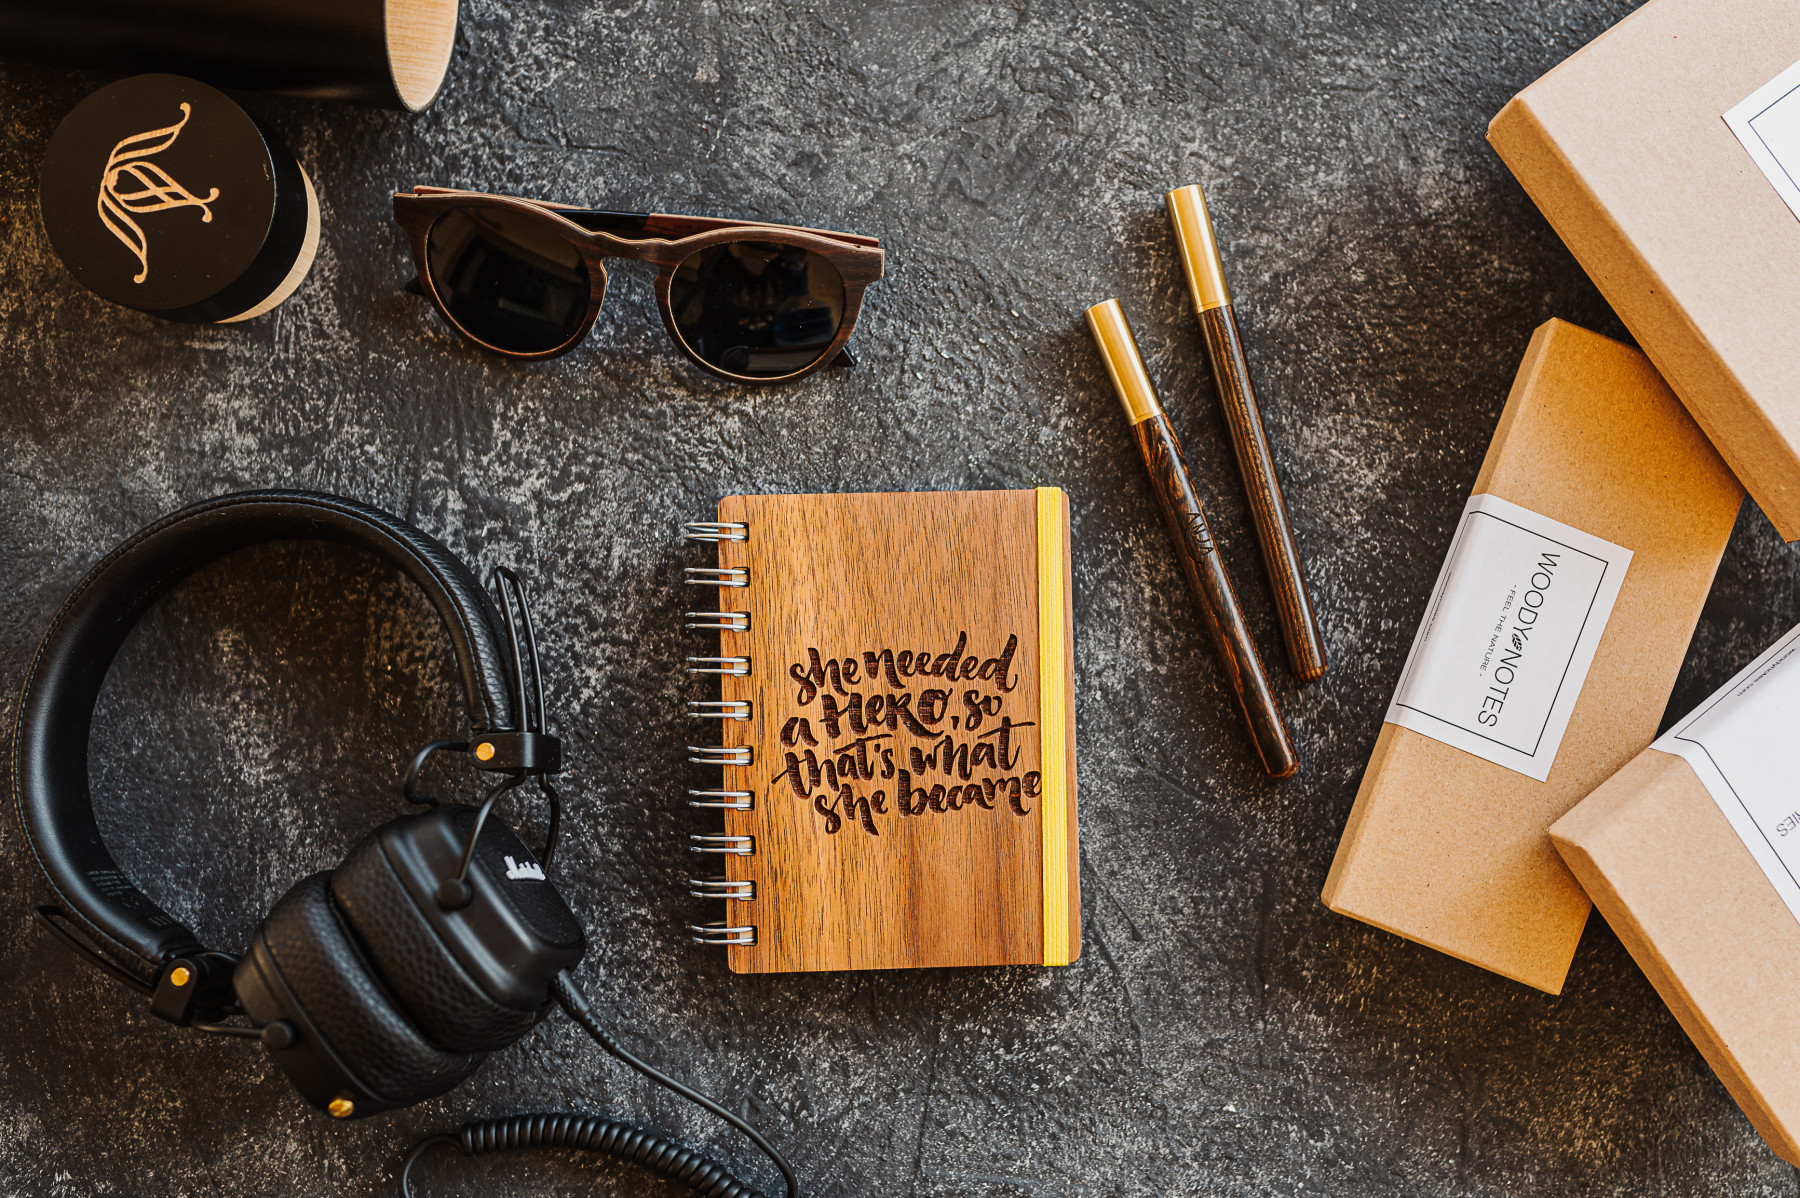 she needed
a HERO, so
that's what
she became
ANJA
WOODY NOTES
- FEEL THE NATURE -
woodynotes.com
RIES